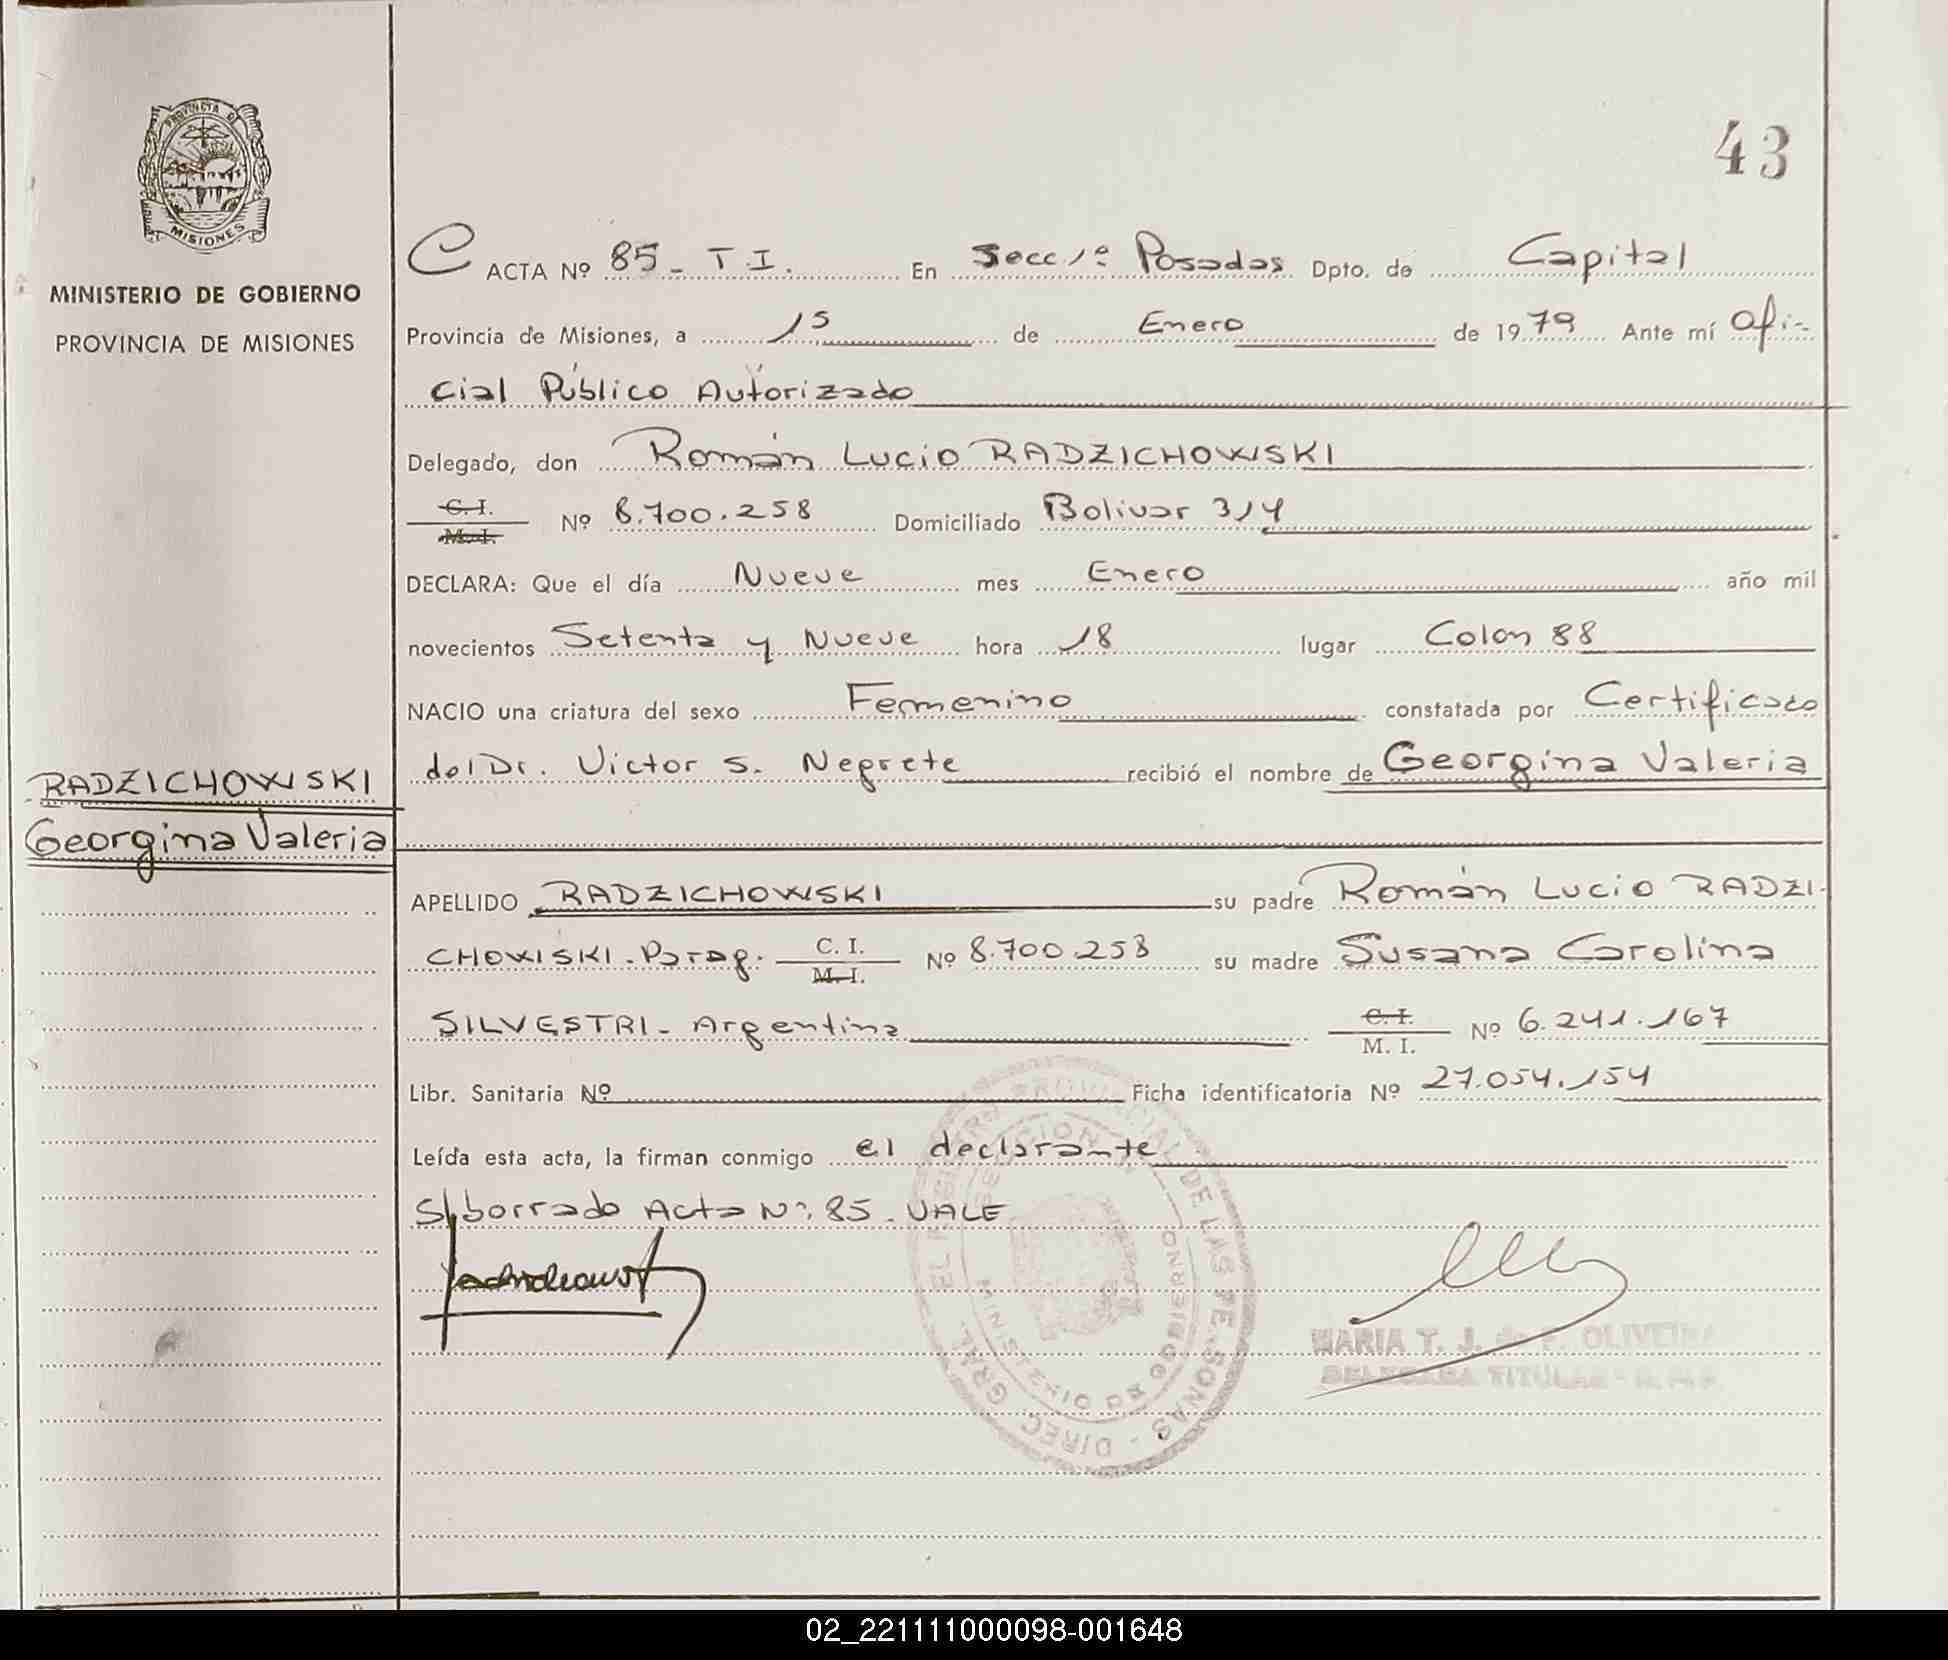 43
PROVINCIA DE
MISIONES
MINISTERIO DE GOBIERNO
PROVINCIA DE MISIONES
RADZICHOWSKI
Georgina Valeria
C ACTA Nº 85 - T. I. En Secc 1º Posadas Dpto. de Capital
Provincia de Misiones, a 15 de Enero de 1979 Ante mí Ofi-
cial Público Autorizado
Delegado, don Román Lucio RADZICHOWSKI
C. I.
M. I. Nº 8.700.258 Domiciliado Bolivar 314
DECLARA: Que el día Nueve mes Enero año mil
novecientos Setenta y Nueve hora 18 lugar Colon 88
NACIO una criatura del sexo Femenino constatada por Certificado
del Dr. Victor S. Negrete recibió el nombre de Georgina Valeria
APELLIDO RADZICHOWSKI su padre Román Lucio RADZI-
CHOWSKI - Parag. C. I. M. I. Nº 8.700.258 su madre Susana Carolina
SILVESTRI - Argentina C. I. M. I. Nº 6.241.167
Libr. Sanitaria Nº Ficha identificatoria Nº 27.054.154
Leída esta acta, la firman conmigo el declarante
S/borrado Acta Nº. 85 - VALE
MARIA T. J. de F. OLIVEIRA
DELEGADA TITULAR
DIREC. GRAL. DEL REGISTRO PROVINCIAL DE LAS PERSONAS
MINISTERIO DE GOBIERNO
02_221111000098-001648